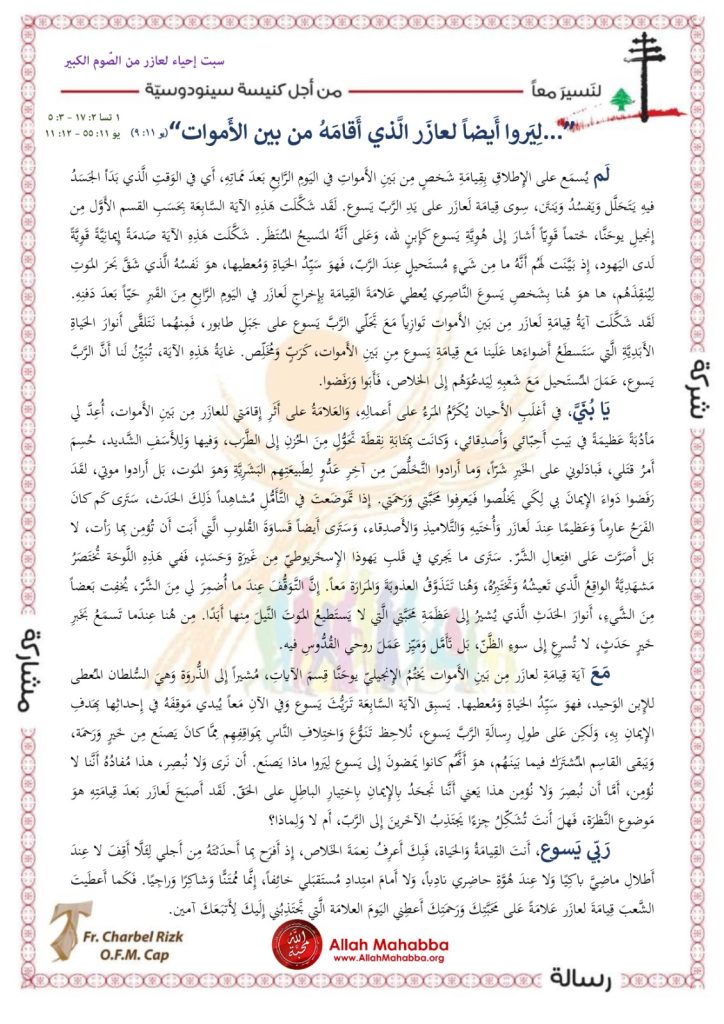 سبت إحياء لعازر من الصّوم الكبير
لنَسيرَ معاً
من أجل كنيسة سينودوسيّة
١ تسا ٢: ١٧ - ٣: ٥
يو ١١: ٥٥ - ١٢: ١١
”...لِيَروا أَيضاً لعازَر الَّذي أَقامَهُ من بين الأَموات“ (يو ١١: ٩)
لَم يُسمَع على الإطلاقِ بِقِيامَةِ شَخصٍ مِن بَينِ الأَمواتِ في اليَومِ الرَّابِعِ بَعدَ مَماتِهِ، أي في الوَقتِ الَّذي بَدَأ الجَسَدُ
فيهِ يَتَحَلَّل وَيَفسُدُ وَيَنتَن، سِوى قِيامَة لَعازر على يَدِ الرَّبّ يَسوع. لَقَد شَكَّلَت هَذِهِ الآيَة السَّابِعَة بِحَسَبِ القسم الأوَّل مِن
إنجيلِ يوحَنّا، خَتماً قَوِيّاً أشارَ إلى هُوِيَّةِ يَسوع كَإبنٍ لله، وَعلى أنَّهُ المَسيحُ المُنتَظَر. شَكَّلَت هَذِهِ الآيَة صَدمَةً إيمانِيَّةً قَوِيَّةً
لدى اليَهود، إذ بَيَّنَت لَهُم أنَّهُ ما مِن شَيءٍ مُستَحيلٍ عِندَ الرَّبّ، فَهوَ سَيِّدُ الحَياةِ وَمُعطيها، هو نَفسُهُ الَّذي شَقَّ بَحرَ المَوتِ
لِيُنقِذَهُم، ها هوَ هُنا بِشَخصِ يَسوعَ النَّاصِري يُعطي عَلامَةَ القِيامَة بِإخراجِ لَعازَر في اليَومِ الرَّابِعِ مِنَ القَبرِ حَيّاً بَعدَ دَفنِهِ.
لَقَد شَكَّلَت آيَةُ قِيامَةِ لَعازر مِن بَينِ الأَموات تَوازِياً مَع تَجَلّي الرَّبِّ يَسوع على جَبَلِ طابور، فَمِنهُما نَتَلَقّى أنوارَ الحَياةِ
الأَبَدِيَّةِ الَّتي سَتَسطَعُ أضواءَها عَلَينا مَع قِيامَةِ يَسوع مِن بَينِ الأَموات، كَرَبٍّ وَمُخَلِّص. غايَةُ هَذِهِ الآيَة، تُبَيِّنُ لنا أنَّ الرَّبَّ
يَسوع، عَمَلَ المُستَحيل مَعَ شَعبِهِ لِيَدعُوَهُم إلى الخَلاص، فَأَبَوا وَرَفَضوا.
يَا بُنَيَّ، في أغلَبِ الأحيان يُكَرَّمُ المَرءُ على أعمالِهِ، وَالعَلامَةُ على أثَرِ إقامَتي للعازر مِن بَينِ الأموات، أُعِدَّ لي
مَأدُبَةً عَظيمَةً في بَيتِ أحِبّائي وَأصدِقائي، وَكانَت بِمَثابَةِ نِقطَة تَحَوُّلٍ مِنَ الحُزنِ إلى الطَّرَب، وَفيها وَلِلأَسَفِ الشَّديد، حُسِمَ
أمرُ قَتلي، فَبادَلوني على الخَيرِ شَرّاً، وَما أرادوا التَّخَلُّصَ مِن آخِرِ عَدُوٍّ لِطَبيعَتِهِم البَشَرِيَّةِ وَهوَ الموت، بَل أرادوا موتي، لَقَدْ
رَفَضوا دَواءَ الإيمانِ بي لِكَي يَخلُصوا فَيَعرِفوا مَحَبَّتي وَرَحمَتي. إذا تَمَوضَعتَ في التَّأَمُّلِ مُشاهِداً ذَلِكَ الحَدَث، سَتَرى كَم كانَ
الفَرَحُ عارِماً وَعَظيمًا عِندَ لَعازر وَأُختَيهِ وَالتَّلاميذِ وَالأَصدِقاء، وَسَتَرى أيضاً قَساوَةَ القُلوبِ الَّتي أبَت أن تُؤمِن بِما رَأت، لا
بَل أصَرَّت على افتِعالِ الشَّرّ. سَتَرى ما يَجري في قَلبِ يَهوذا الإسخَريوطيّ مِن غَيرَةٍ وَحَسَدٍ، فَفي هَذِهِ اللَّوحَة تُختَصَرُ
مَشهَدِيَّةُ الواقِعُ الَّذي تَعيشُهُ وَتَختَبِرُهُ، وَهُنا تَتَذَوَّقُ العذوبَةَ وَالمَرارَةَ مَعاً. إنَّ التَّوَقُّفَ عِندَ ما أُضمِرَ لي مِنَ الشَّرّ، يُخفِت بَعضاً
مِنَ الشَّيءِ، أنوارَ الحَدَثِ الَّذي يُشيرُ إلى عَظَمَةِ مَحَبَّتي الَّتي لا يَستَطيعُ المَوتَ النَّيلَ مِنها أبَدًا. مِن هُنا عِندَما تَسمَعُ بِخَبَرِ
خَيرِ حَدَثٍ، لا تُسرِع إلى سوءِ الظَّنّ، بَل تَأَمَّل وَمَيِّز عَمَلَ روحي القُدُّوسِ فيه.
مَعَ آيَة قِيامَةِ لعازر مِن بَينِ الأموات يَختُمُ الإنجيليّ يوحَنَّا قِسمَ الآياتِ، مُشيراً إلى الذُّروَة وَهيَ السُّلطان المُعطى
للإبنِ الوَحيد، فَهوَ سَيِّدُ الحَياةِ وَمُعطيها. يَسبِق الآيَة السَّابِعَة تَرَيُّثَ يَسوع وَفي الآن مَعاً يُبدي مَوقِفَهُ في إحداثِها بِهَدَفِ
الإيمانِ بِهِ، وَلَكِن على طولِ رِسالَةِ الرَّبّ يَسوع، نُلاحِظ تَنَوُّعَ وَاختِلافَ النَّاسِ بِمَواقِفِهِم مِمَّا كانَ يَصنَع مِن خَيرٍ وَرَحمَة،
وَيَبقى القاسِم المُشتَرَك فيما بَينَهُم، هو أنَّهُم كانوا يَمضونَ إلى يَسوع لِيَروا ماذا يَصنَع. أن نَرى وَلا نُبصِر، هذا مُفادُهُ أنَّنا لا
نُؤمِن، أمَّا أن نُبصِرَ وَلا نُؤمِن هذا يَعني أنَّنا نَجحَدُ بِالإيمانِ بِاختِيارِ الباطِلِ على الحَقّ. لَقَد أصبَحَ لَعازر بَعدَ قِيامَتِهِ هو
مَوضوع النَّظرَة، فَهل أنتَ تُشَكِّلُ جِزءًا يَجتَذِبُ الآخَرينَ إلى الرَّبّ، أم لا وَلِماذا؟
رَبّي يَسوع، أنتَ القِيامَةُ وَالحَياة، فَبِكَ أعرِفُ نِعمَةَ الخَلاص، إذ أفرَح بِما أحدَثتَهُ مِن أجلي لِئَلَّا أقِفَ لا عِندَ
أطلالِ ماضِيَّ باكِيًا وَلا عِندَ هُوَّةِ حاضِري نادِباً، وَلا أمامَ امتِدادِ مُستَقبَلي خائِفاً، إنَّما مُمتَنًّا وَشاكِرًا وَراجِيًا. فَكَما أعطَيتَ
الشَّعبَ قِيامَةَ لعازر عَلامَةً على مَحَبَّتِكَ وَرَحمَتِكَ أعطِني اليَومَ العلامَة الَّتي تَجتَذِبُني إلَيكَ لِأَتبَعَكَ آمين.
شركة
مشاركة
رسالة
Fr. Charbel Rizk
O.F.M. Cap
الله محبة
Allah Mahabba
www.AllahMahabba.org